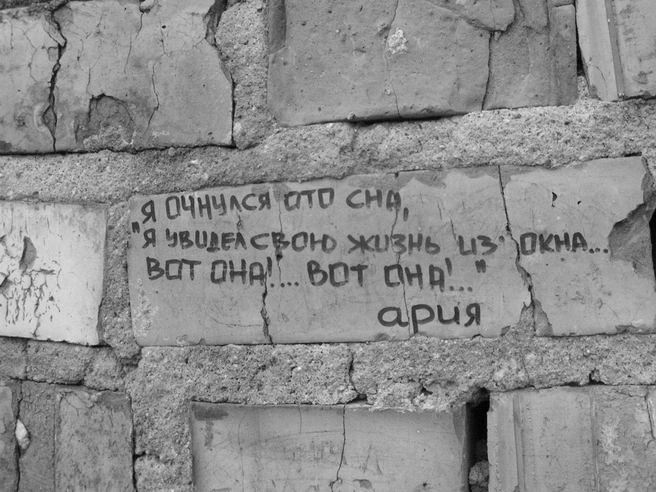 "Я ОЧНУЛСЯ ОТО СНА,
"Я УВИДЕЛ СВОЮ ЖИЗНЬ ИЗ ОКНА...
ВОТ ОНА!... ВОТ ОНА!..."
ария